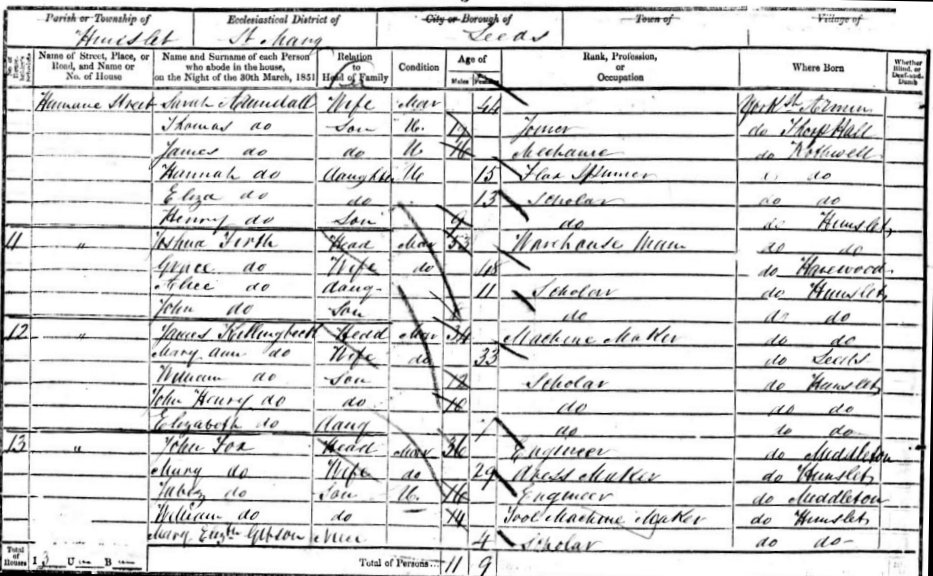 Parish or Township of Ecclesiastical District of City or Borough of Town of Village of
Hunslet St Mary Leeds
Name of Street, Place, or Road, and Name or No. of House Name and Surname of each Person who abode in the house, on the Night of the 30th March, 1851 Relation to Head of Family Condition Age of Males Females Rank, Profession, or Occupation Where Born Whether Blind, or Deaf-and-Dumb
Street Sarah Arundall Wife Mar 44 York
Thomas do Son U. 17 Joiner do Thorp Hall
James do do U 16 Mechanic do Rothwell
Hannah do daughter U 15 Flax Spinner do
Eliza do do 13 Scholar do do
Henry do Son 9 do do Hunslet
11 " Joshua Firth Head Mar 53 Warehouse Man do do
Grace do Wife do 48 do Harewood
Alice do daug 11 Scholar do Hunslet
John do Son do do do
12 " James Killingbeck Head Mar 34 Machine Maker do do
Mary Ann do Wife do 33 do Leeds
William do Son 12 Scholar do Hunslet
John Henry do do 10 do do do
Elizabeth do daug 7 do do do
13 " John Fox Head Mar 36 Engineer do Middleton
Mary do Wife do 29 dress Maker do Hunslet
Jabez do Son U. 16 Engineer do Middleton
William do do 14 Tool Machine Maker do Hunslet
Mary Elizth Gibson Niece 4 Scholar do do
Total of Houses 13 U B Total of Persons... 11 9